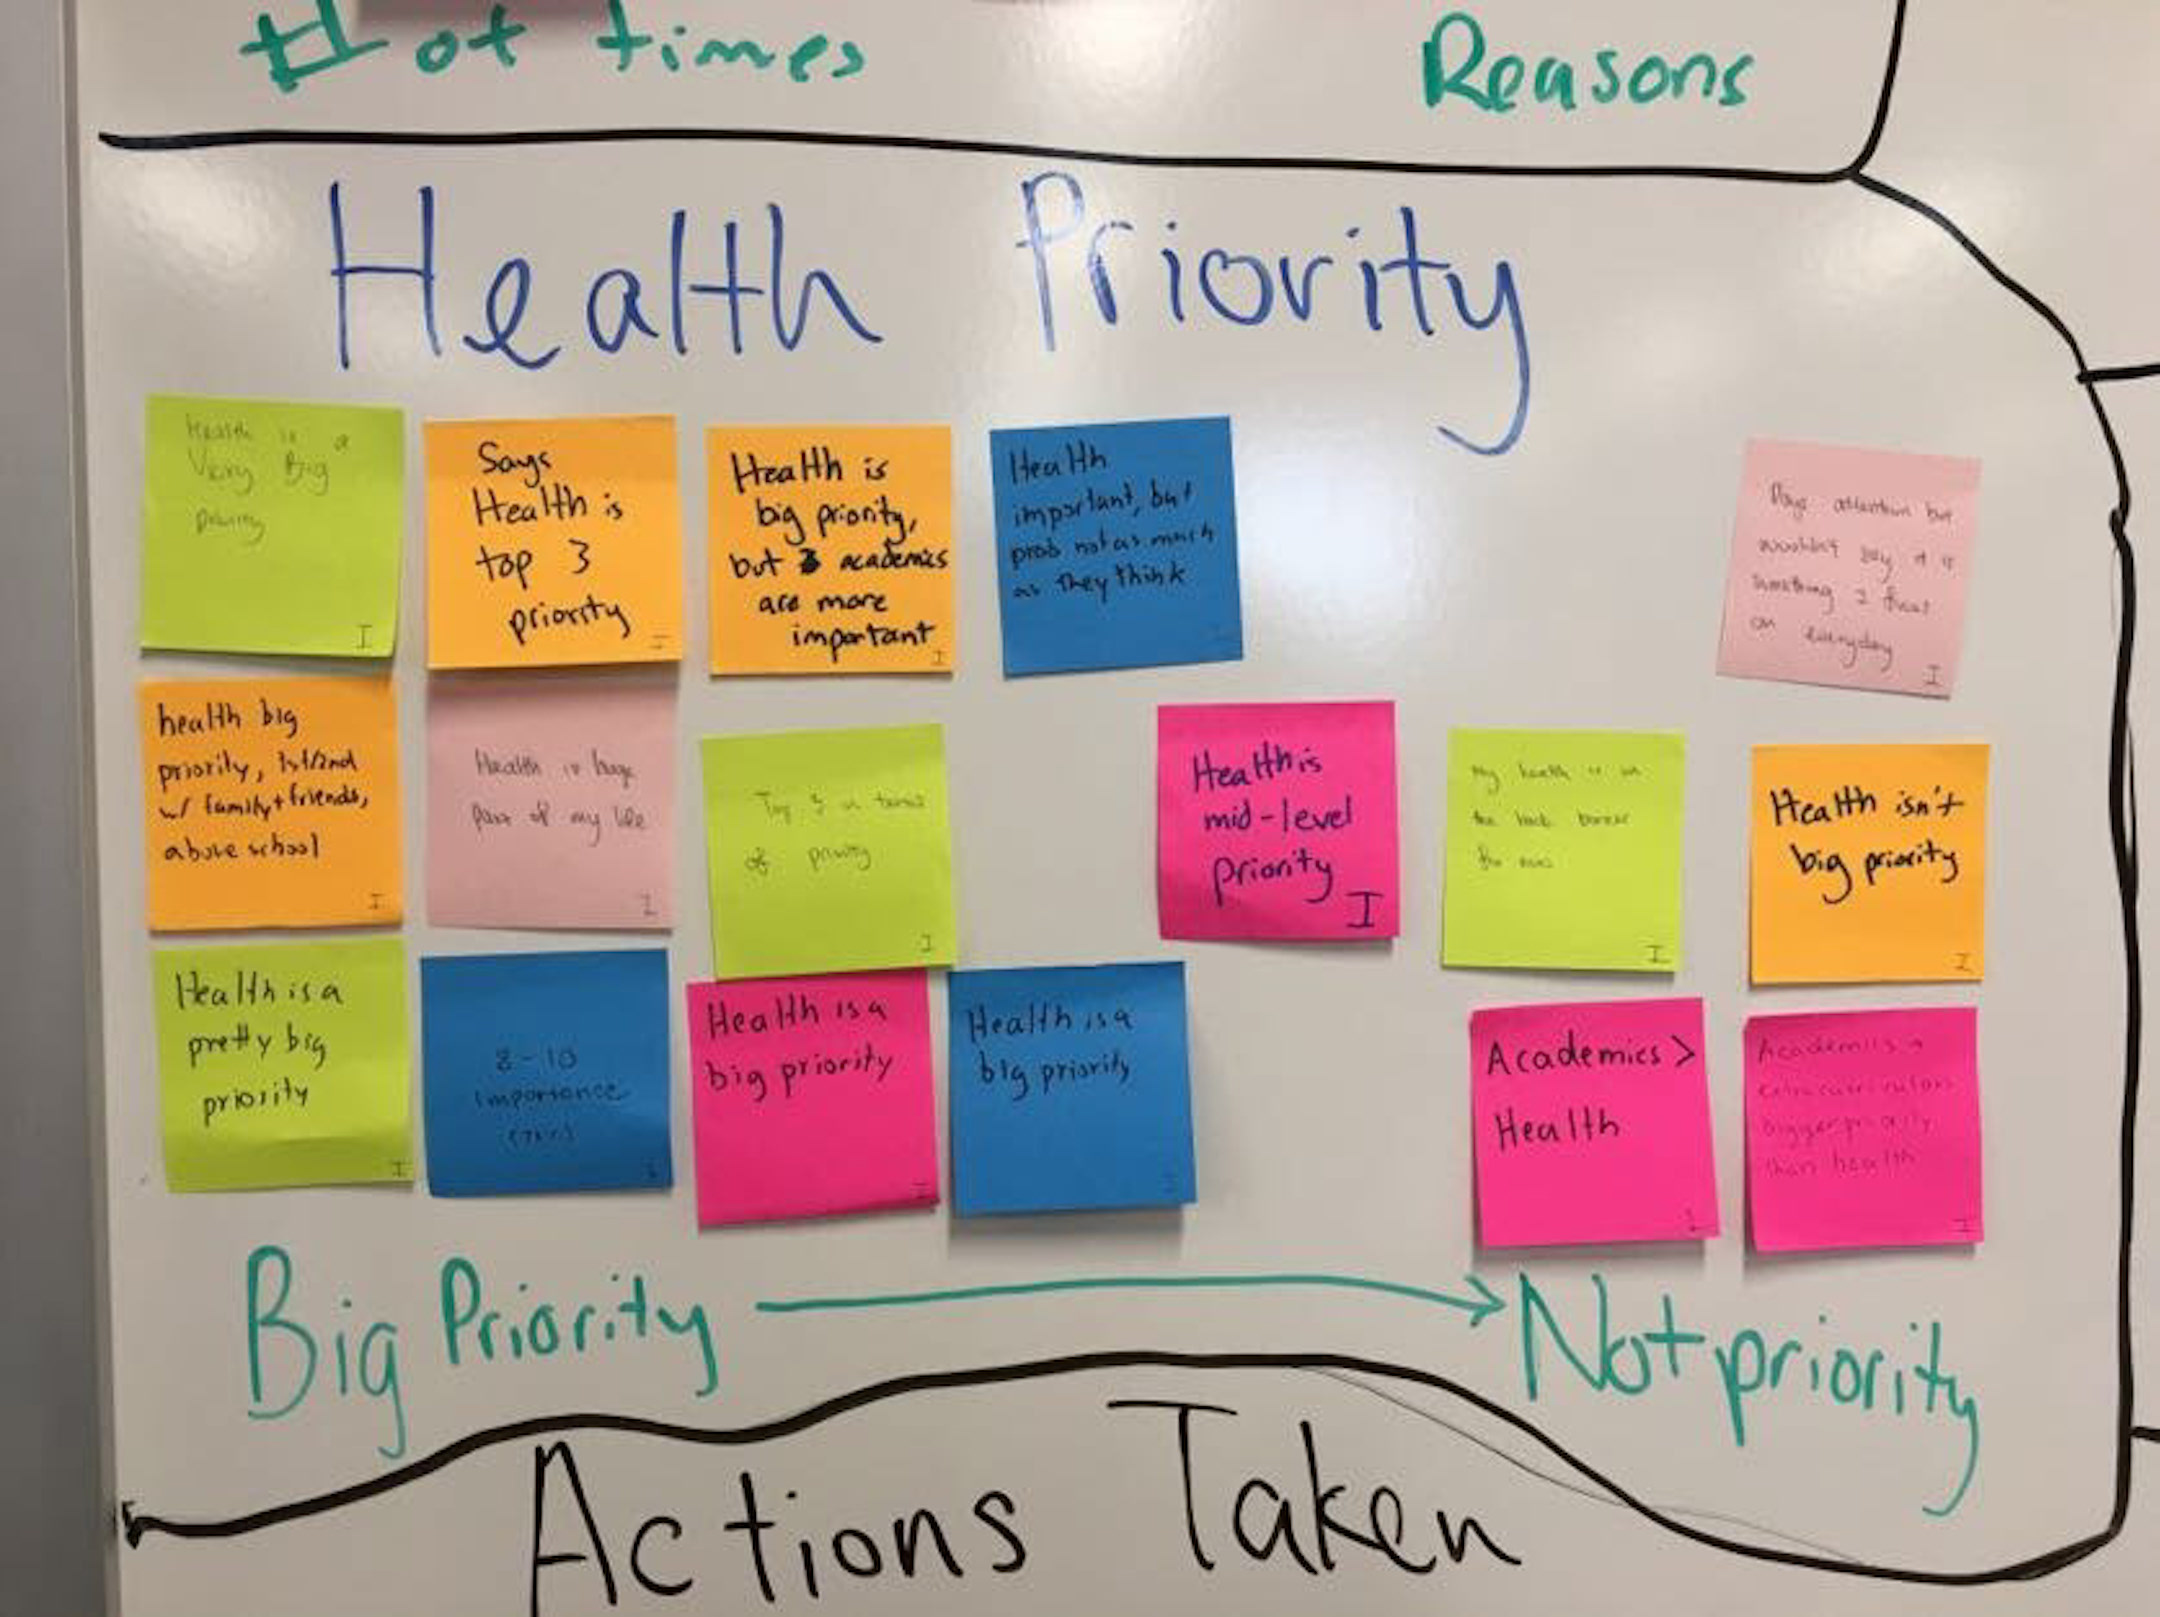 # of times
Reasons
Health Priority
Health is a
Very Big
priority
I
Says
Health is
top 3
priority
I
Health is
big priority,
but academics
are more
important
I
Health
important, but
prob not as much
as they think
I
Pays attention but
wouldn't say it is
something I
on everyday
I
health big
priority, 1st/2nd
w/ family + friends,
above school
I
Health is huge
part of my life
I
Top in terms
of priority
I
Health is
mid-level
priority
I
My health is on
the back burner
for now
I
Health isn't
big priority
I
Health is a
pretty big
priority
I
8-10
importance
I
Health is a
big priority
I
Health is a
big priority
I
Academics >
Health
I
Academics +
extracurriculars
bigger priority
than health
I
Big Priority → Not priority
Actions Taken